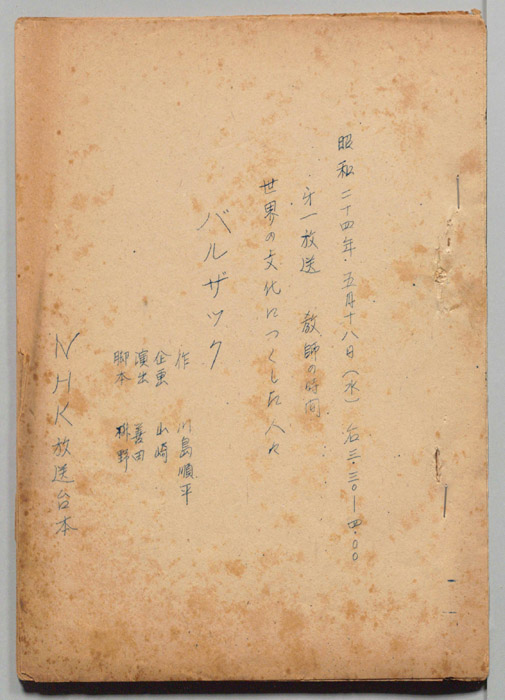 昭和二十四年五月十八日(水) 后三.三〇―四.〇〇
才一放送 教師の時間
世界の文化につくした人々
バルザック
作 川島順平
企画 山崎
演出 喜田
脚本 桝野
NHK放送台本